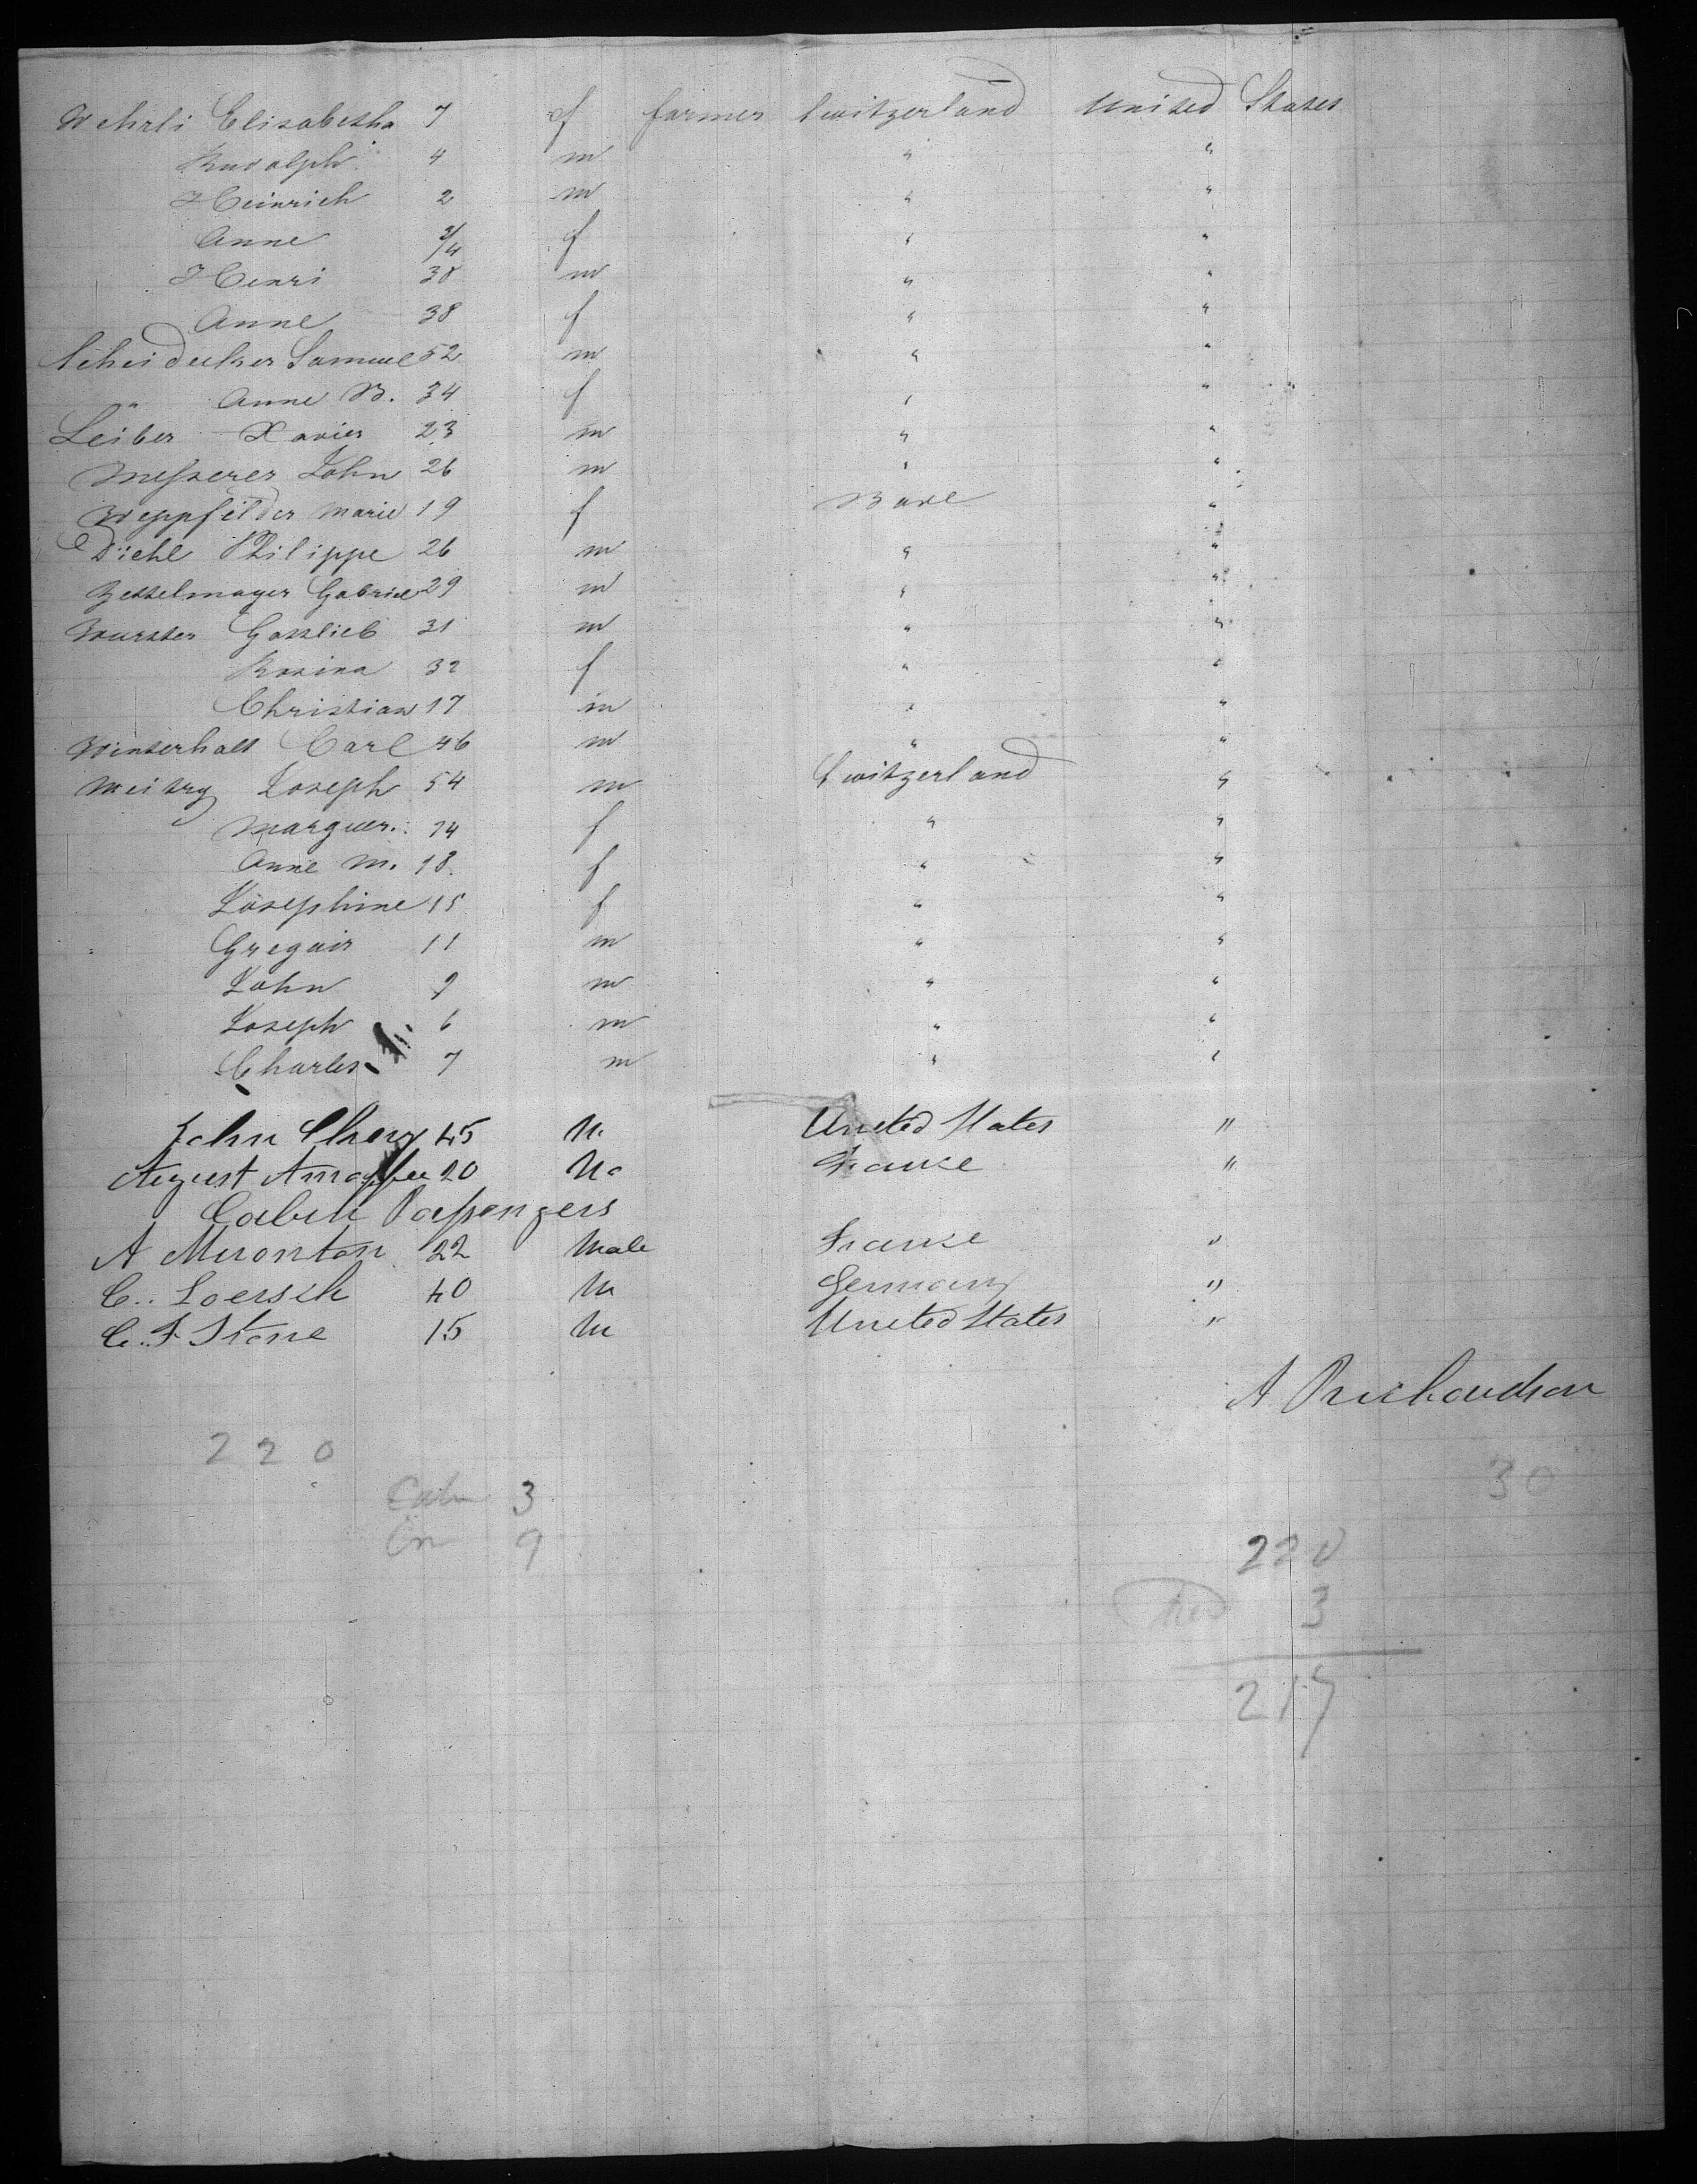 Wehrli Elisabetha 7 f farmer Switzerland United States
Rudolph 4 m " "
Heinrich 2 m " "
Anne 3/4 f " "
Henri 38 m " "
Anne 38 f " "
Scheidecker Samuel 52 m " "
" Anne B. 34 f " "
Leiber Xavier 23 m " "
Messerer John 26 m " "
Weppfelder Marie 19 f Bade "
Diehl Philippe 26 m " "
Zettelmayer Gabriel 29 m " "
Wurster Gottlieb 31 m " "
Rosina 32 f " "
Christian 17 m " "
Winterhalt Carl 46 m " "
Joseph 54 m Switzerland "
Marguer. 14 f " "
Anne M. 18 f " "
Josephine 15 f " "
Gregoir 11 m " "
John 9 m " "
Joseph 6 m " "
Charles 7 m " "
John 45 M United States "
August 20 M France "
Cabin Passengers
A 22 Male France "
C. Loersch 40 M Germany "
C. F Stone 15 M United States "
A Richardson
220
30
Cab 3
9
220
3
217